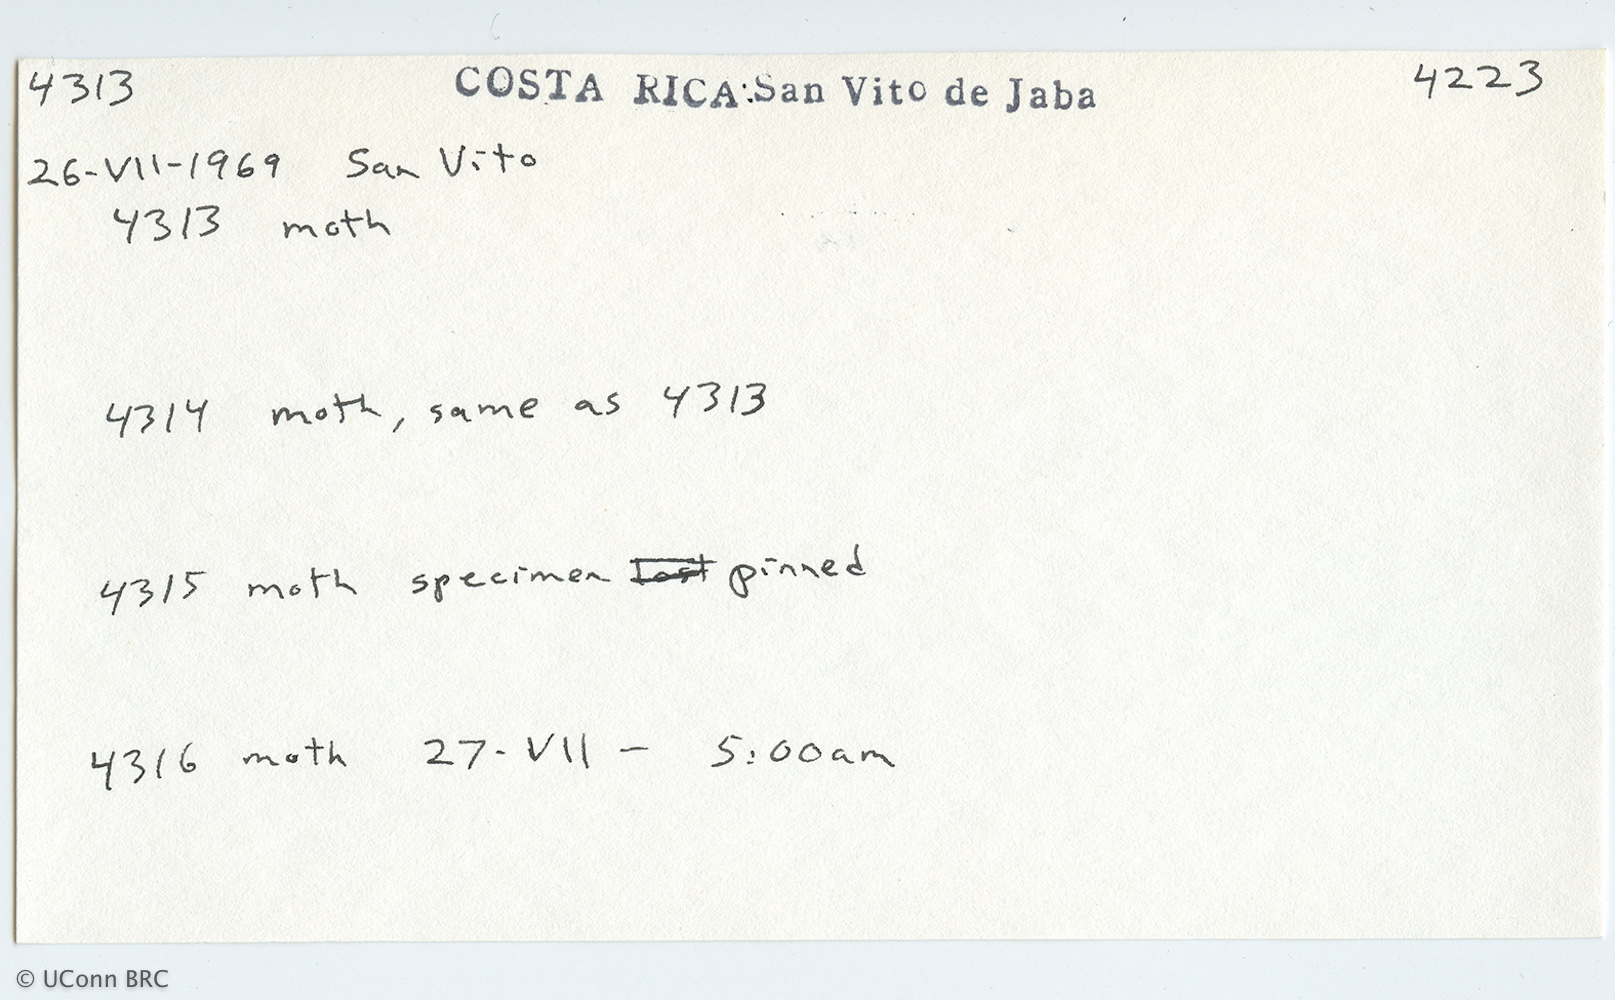 4313 COSTA RICA: San Vito de Jaba 4223
26-VII-1969 San Vito
4313 moth
4314 moth, same as 4313
4315 moth specimen lost pinned
4316 moth 27-VII - 5:00am
© UConn BRC